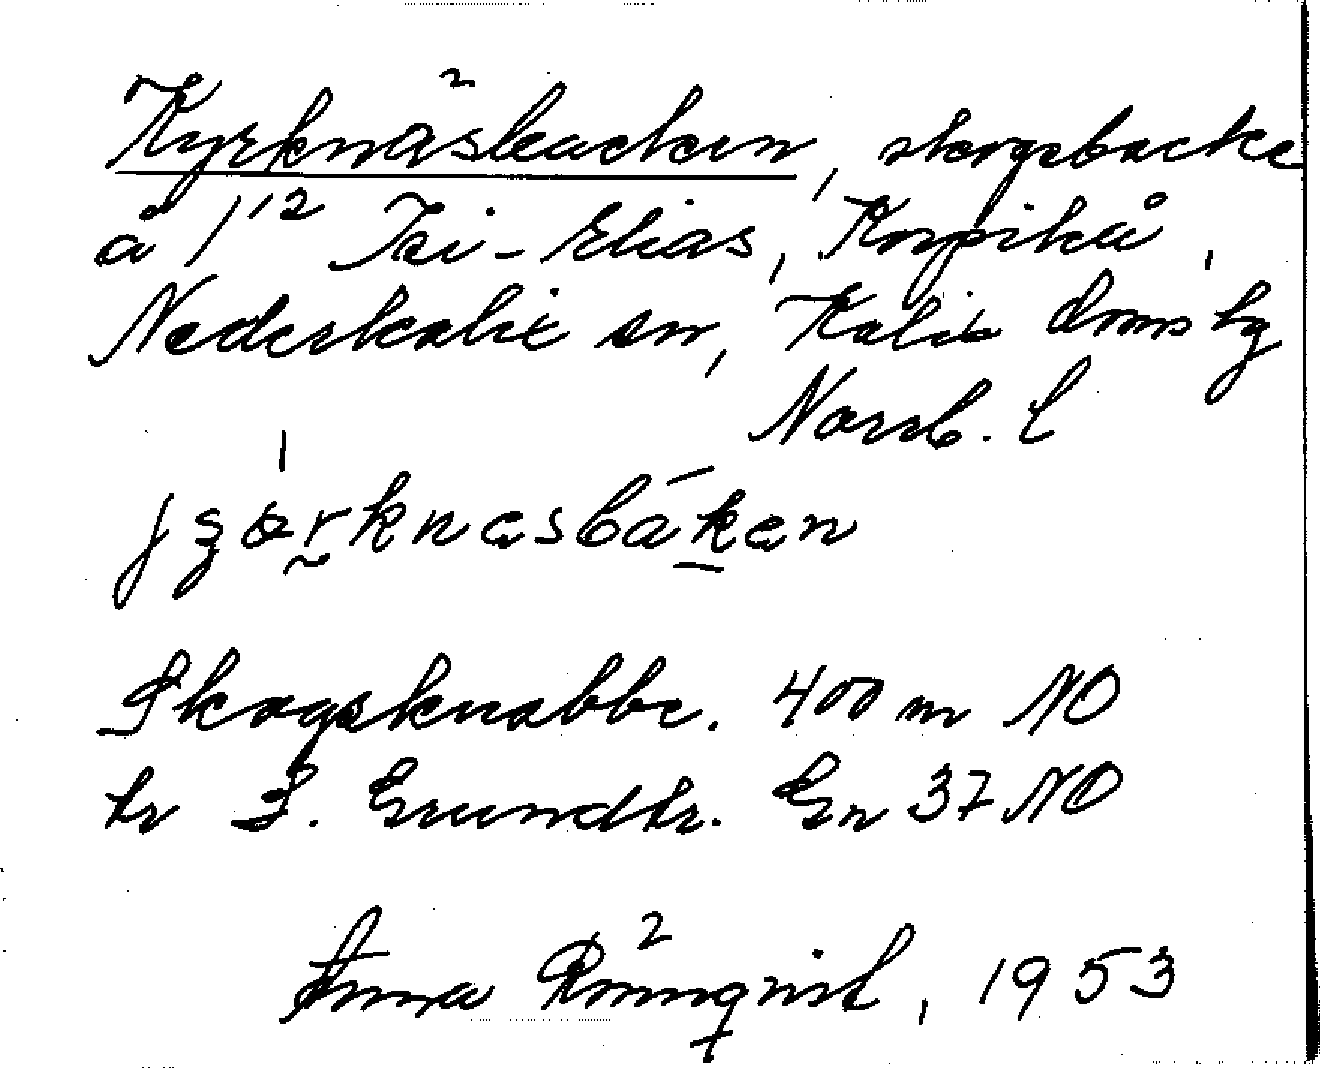 Kyrknäsbacken, skogsbacke
å 1¹² Isi-Elias, Korpikå,
Nederkalix sn, Kalix doms hg
Norrb. l
Skogsknabbe. 400 m NO
tr S. Grundtr. En 37 NO
Anna Rönnqvist, 1953